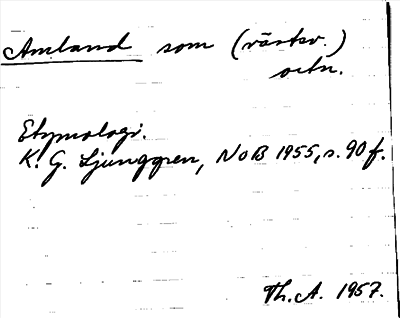 Amland som (västsv.)
ortn.
Etymologi.
K. G. Ljunggren, NoB 1955, s. 90 f.
Th. A. 1957.